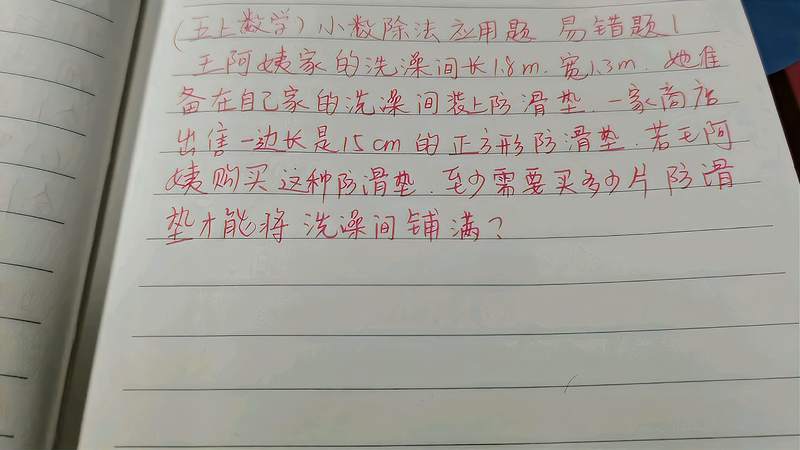 (五上数学)小数除法应用题 易错题1
王阿姨家的洗澡间长1.8m.宽1.3m.她准
备在自己家的洗澡间装上防滑垫.一家商店
出售一边长是15cm的正方形防滑垫.若王阿
姨购买这种防滑垫.至少需要买多少片防滑
垫才能将洗澡间铺满?